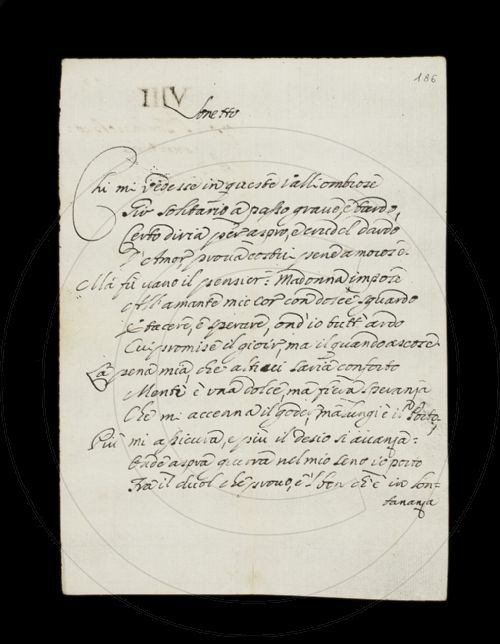 186
IIIV
Sonetto
Chi mi vedesse in queste valli ombrose
Gir solitario a passo graue, e tardo,
Certo diria per aspro, e crudel dardo
D'Amor proua costui pene amorose.
Ma fù uano il pensier: Madonna impose
All'amante mio cor con dolce sguardo
E tacere, e sperare, ond'io tutt'ardo
Cui promise il gioir, ma il quando ascose.
La pena mia, che altrui saria conforto
Mentr'è una dolce, ma fiera speranza
Che mi accenna il goder, ma lungi è il Porto,
Più mi assicura, e più il desio si auanza:
Onde aspra guerra nel mio seno io porto
Fra il duol che prouo, e 'l ben ch'è in lon=
tananza